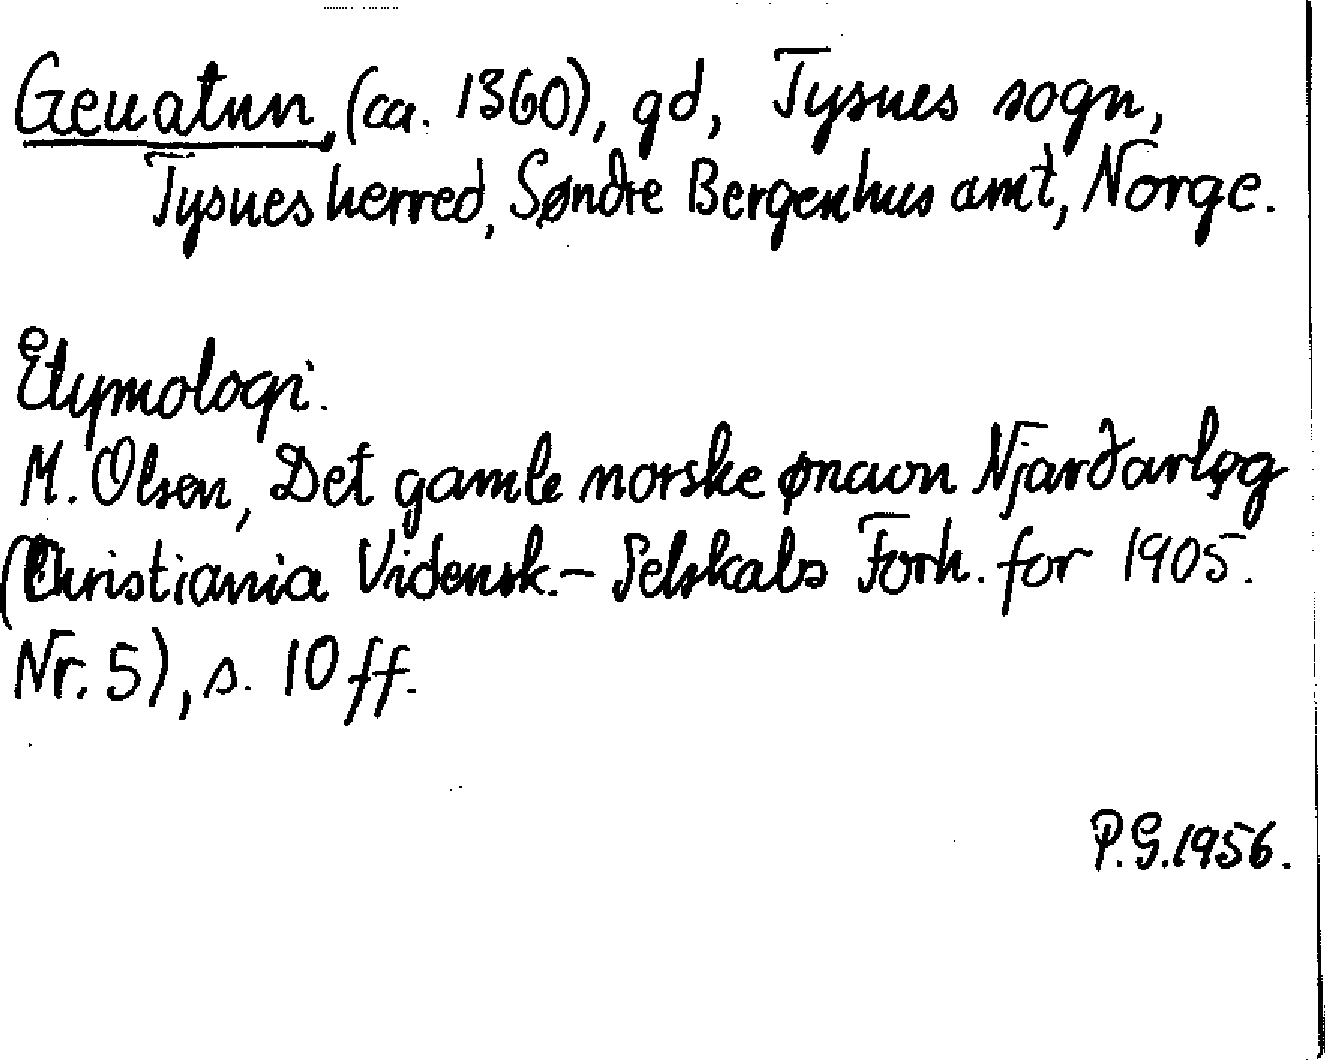 Geuatun, (ca. 1360), gd, Tysnes sogn,
Tysnes herred, Søndre Bergenhus amt, Norge.
Etymologi.
M. Olsen, Det gamle norske ønavn Njarðarlǫg
(Christiania Vidensk.-Selskabs Forh. for 1905.
Nr. 5), s. 10 ff.
P.G. 1956.